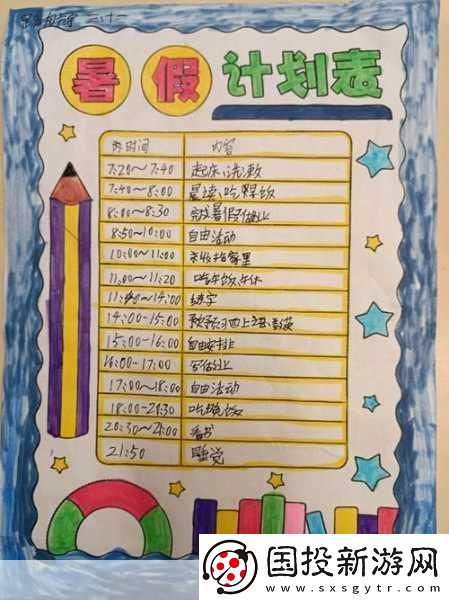 暑假计划表
时间 内容
7:20~7:40 起床、洗漱
7:40~8:00 晨读、吃早饭
8:00~8:30 完成暑假作业
8:50~10:00 自由活动
10:00~11:00
11:00~11:20 吃午饭、午休
11:40~14:00 练字
14:00-15:00 预习四上
15:00-16:00 自由安排
16:00-17:00 写作业
17:00~18:00 自由活动
18:00-20:30 吃晚饭
20:30~21:00 看书
21:50 睡觉
国投新游网
www.sxsgytr.com